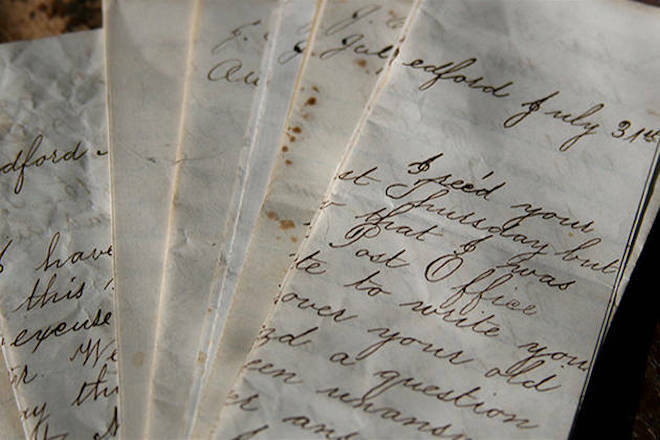 dford
I have
this
excuse
r. We
ay thi
J.
Au
J. C
J. Jul
edford July 31st
I rec'd your
st Thursday but
r that I was
Post Office
te to write you
over your old
nd a question
een unansw
er an